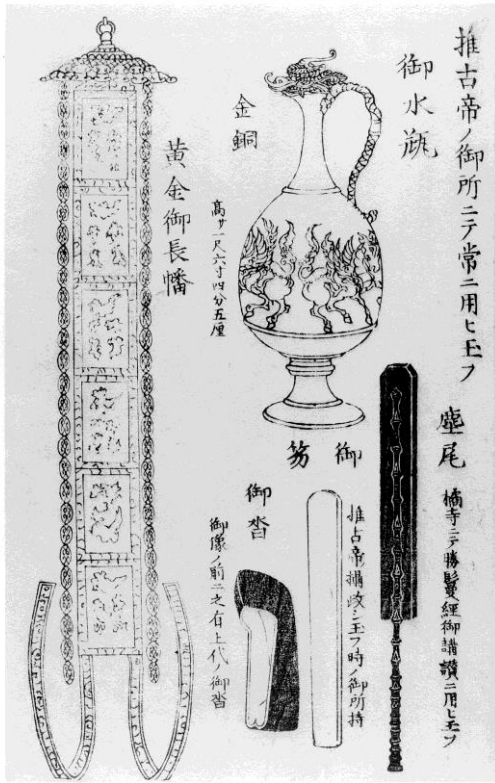 推古帝ノ御所ニテ常ニ用ヒ玉フ
御水瓶
金銅
高サ一尺六寸四分五厘
黄金御長幡
麈尾
橘寺ニテ勝鬘経御講讃ニ用ヒ玉フ
御笏
推古帝摂政シ玉フ時ノ御所持
御沓
御像ノ前ニ之有上代ノ御沓